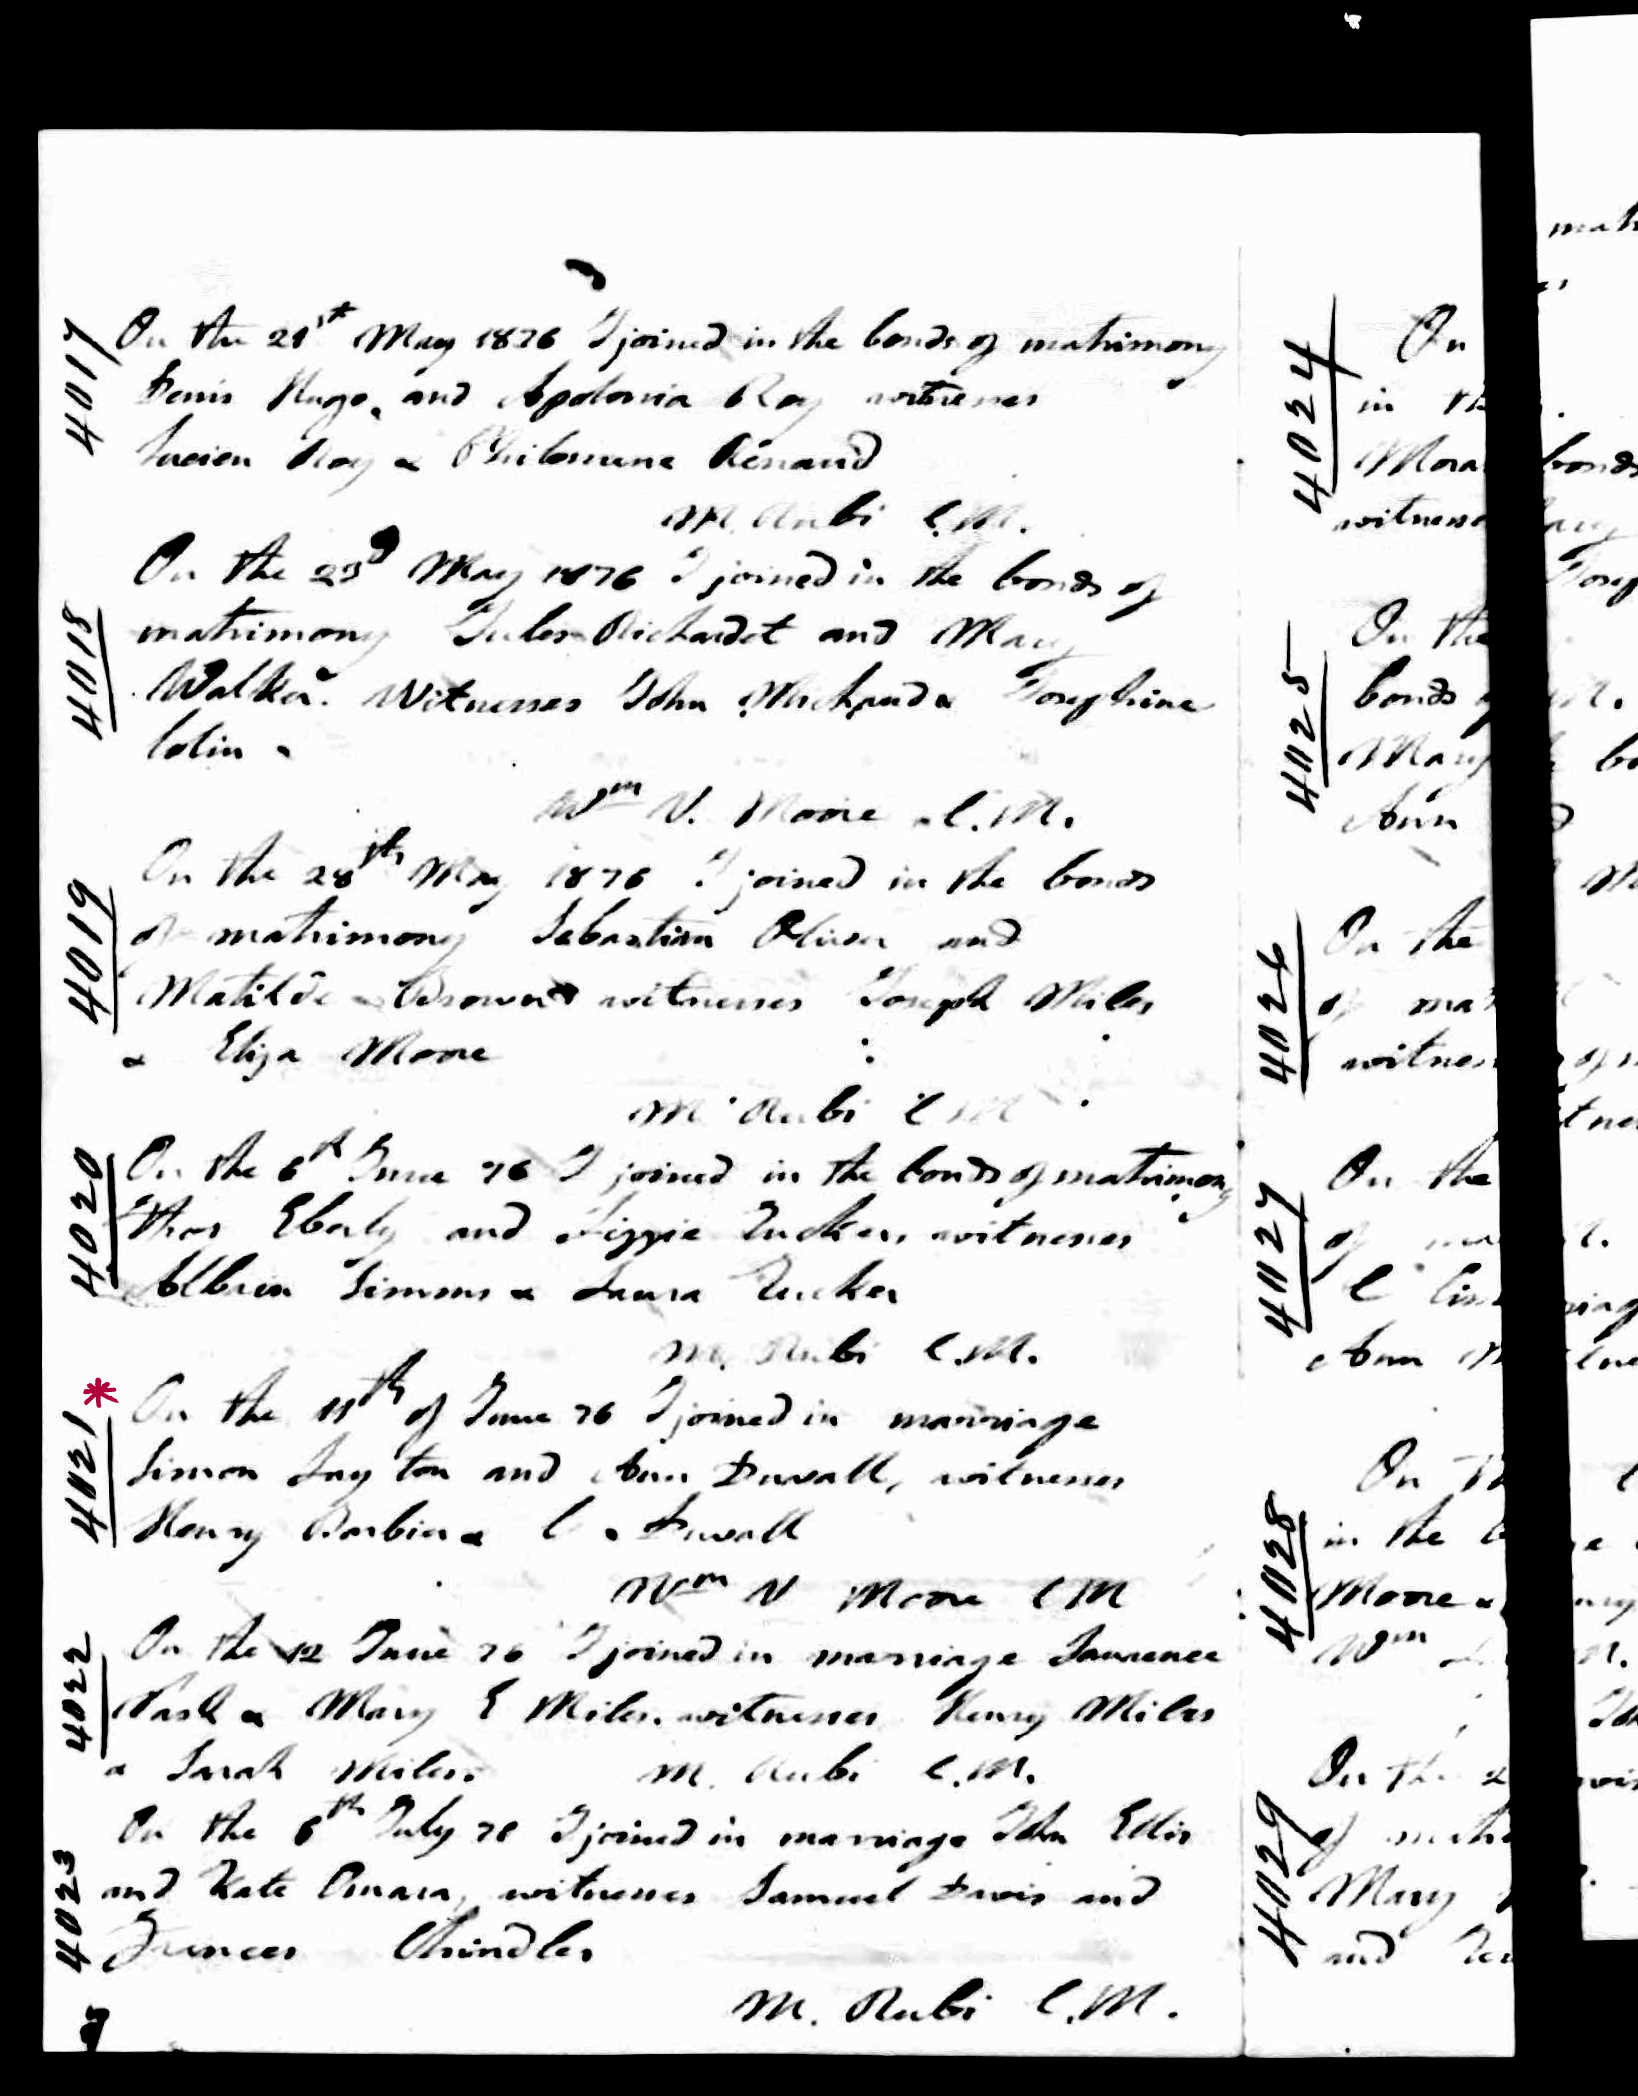 4017
On the 21st May 1876 I joined in the bonds of matrimony
Denis Hugo, and Apolonia Roy witnesses
Lucien Roy & Philomene Renaud
M. Rubi C.M.
4018
On the 23d May 1876 I joined in the bonds of
matrimony Jules Richardet and Mary
Walker. Witnesses John Michaud & Josephine
Colin
Wm V. Moore C.M.
4019
On the 28th May 1876 I joined in the bonds
of matrimony Sebastian Oliver and
Matilde Brown witnesses Joseph Miles
& Eliza Moore
M. Rubi C M
4020
On the 6th June 76 I joined in the bonds of matrimony
Thos Eberly and Lizzie Tucker, witnesses
Simms & Laura Tucker
M. Rubi C.M.
4021
On the 11th of June 76 I joined in marriage
Simon Layton and Ann Duvall, witnesses
Henry Barbier & C. Duvall
Wm V Moore C M
4022
On the 12 June 76 I joined in marriage Laurence
& Mary E Miles. witnesses Henry Miles
& Sarah Miles. M. Rubi C.M.
4023
On the 6th July 76 I joined in marriage John Ellis
and Kate Omara, witnesses Samuel Davis and
Frances Chindler
M. Rubi C.M.
4024
On
in th
Mora
witnesse
4025
On the
bonds
Mary
Ann
4026
On the
of mat
witnes
4027
On the
of ma
C
Ann
4028
On th
in the
Moore &
Wm
4029
On the 2
of matri
Mary
and